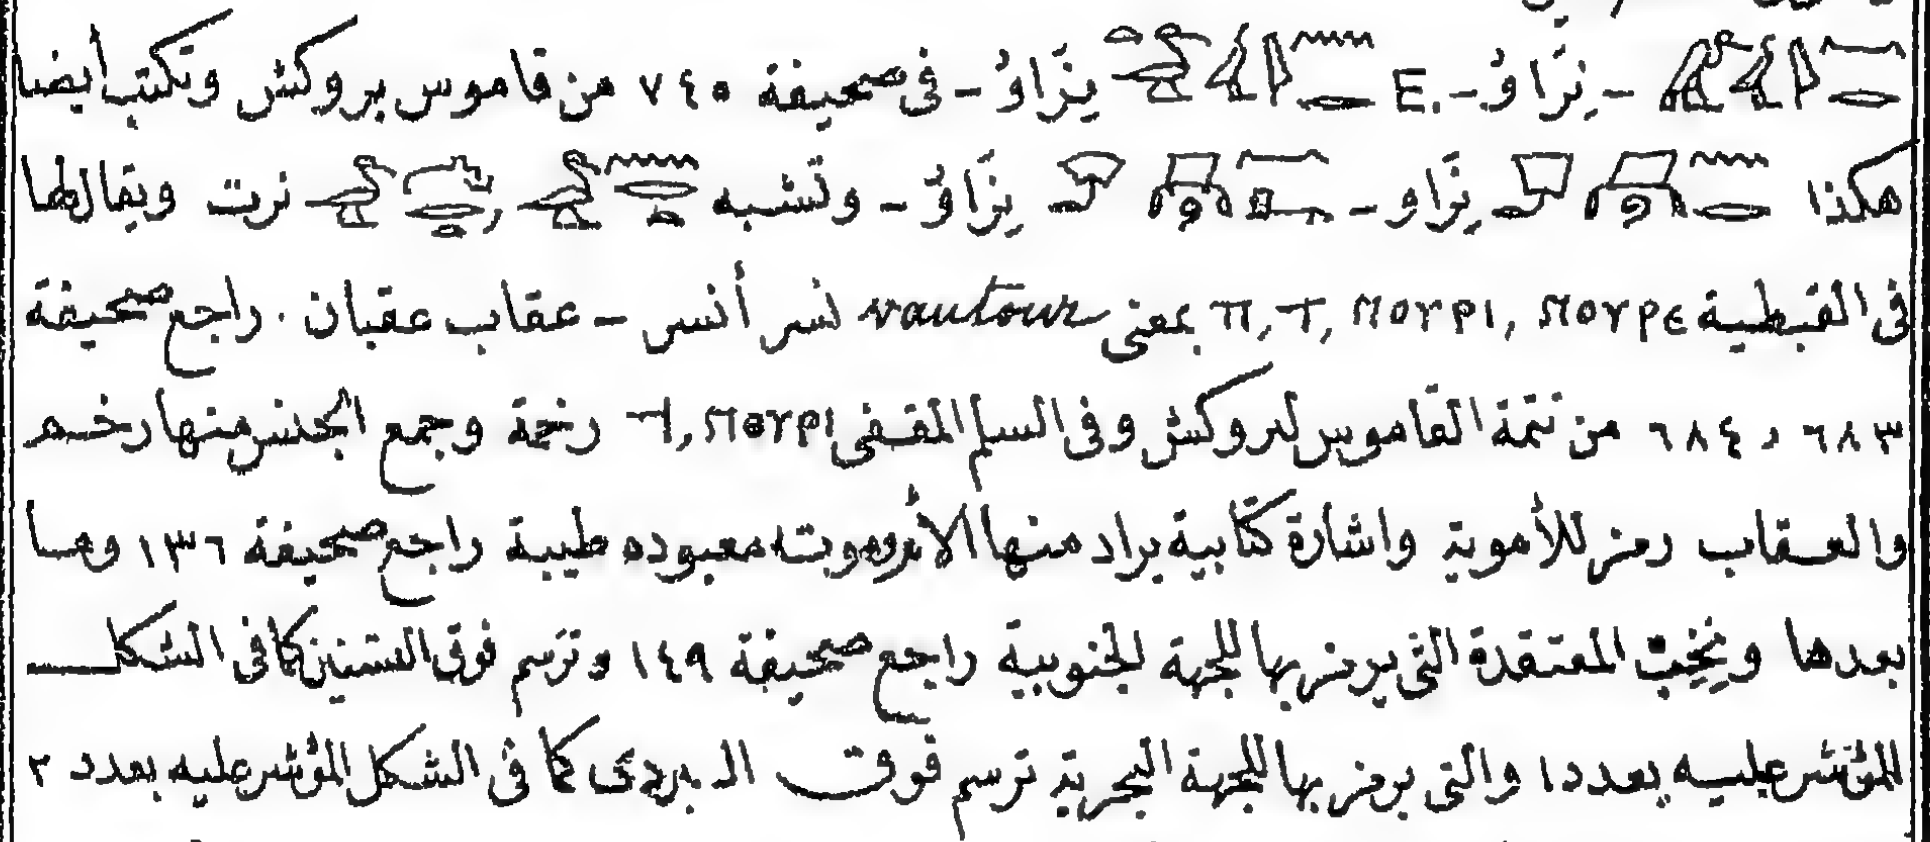 نِرَاوُ - .E يِرَاوُ - فى صحيفة ٧٤٥ من قاموس بروكش وتكتب أيضا
هكذا نِرَاو - يِرَاوُ - وتشبه نرت ويقال لها
فى القبطية ⲛⲟⲩⲣⲉ ,ⲛⲟⲩⲣⲓ ,ⲧ ,ⲡ بمعنى vautour نسر أنسر - عقاب عقبان . راجع صحيفة
٦٨٣ و ٦٨٤ من تتمة القاموس لبروكش وفى السلم المقفى ⲛⲟⲩⲣⲓ ,ϯ رخمة وجمع الجنس منها رخم
والعقاب رمز للأموية واشارة كتابية يراد منها الأم وموت معبوده طيبة راجع صحيفة ١٣٦ وما
بعدها ونِخِبْ المعتقدة التى يرمز بها للجهة الجنوبية راجع صحيفة ١٤٩ وترسم فوق كما فى الشكل
المؤشر عليه بعدد ١ والتى يرمز بها للجهة البحرية ترسم فوق البردى كما فى الشكل المؤشر عليه بعدد ٢